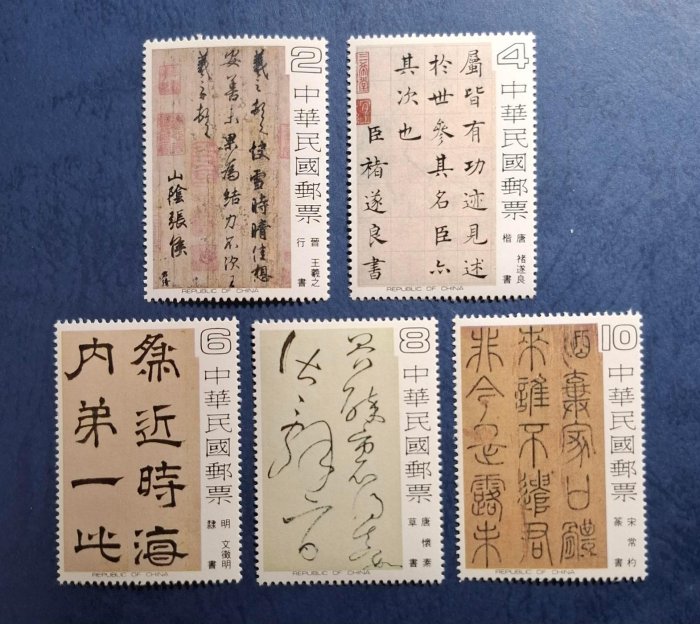 2
中華民國郵票
晉 王羲之
行書
羲之頓首快雪時晴佳想
安善未果為結力不次王
羲之頓首
山陰張侯
REPUBLIC OF CHINA
4
中華民國郵票
唐 褚遂良
楷書
屬皆有功迹見述
於世參其名臣亦
其次也
臣褚遂良書
REPUBLIC OF CHINA
6
中華民國郵票
明 文徵明
隸書
近時海
内弟一比
REPUBLIC OF CHINA
8
中華民國郵票
唐 懷素
草書
REPUBLIC OF CHINA
10
中華民國郵票
宋 常杓
篆書
棄家口
來誰不遣君
非今是露未
REPUBLIC OF CHINA